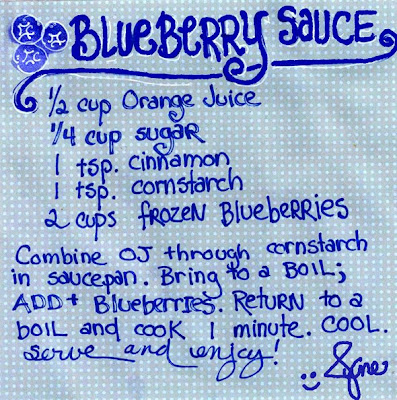 BLUEBERRY SAUCE
1/2 cup Orange Juice
1/4 cup sugar
1 tsp. cinnamon
1 tsp. cornstarch
2 cups FROZEN BlueBERRIES
Combine OJ through cornstarch
in saucepan. Bring to a BOIL;
ADD + BlueBerries. RETURN to a
boIL and cook 1 minute. COOL.
serve and enjoy!